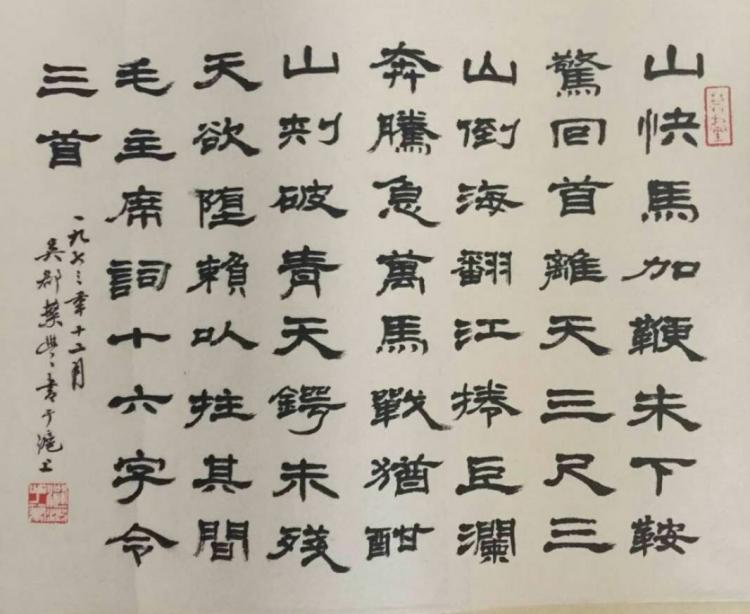 山快馬加鞭未下鞍
驚回首離天三尺三
山倒海翻江捲巨瀾
奔騰急萬馬戰猶酣
山刺破青天鍔未殘
天欲墮賴以拄其間
毛主席詞十六字令
三首
一九七三年十二月
吳郡葉豐書于滬上